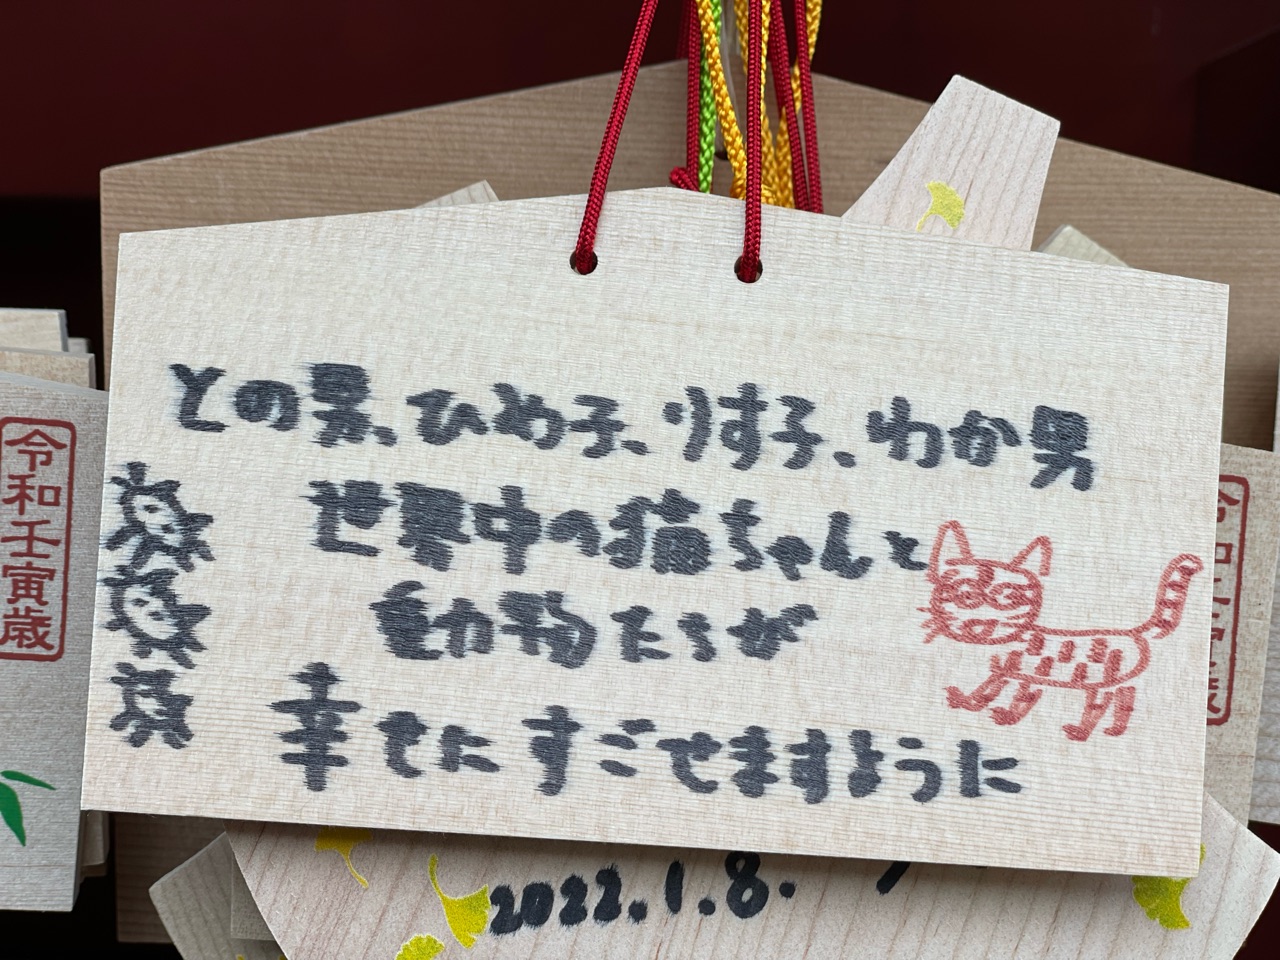 との男、ひめ子、りす子、わか男
世界中の猫ちゃんと
動物たちが
幸せにすごせますように
令和壬寅歳
2022.1.8.